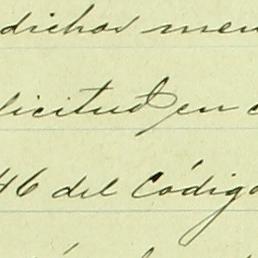 dichos men
licitud en c
46 del Código